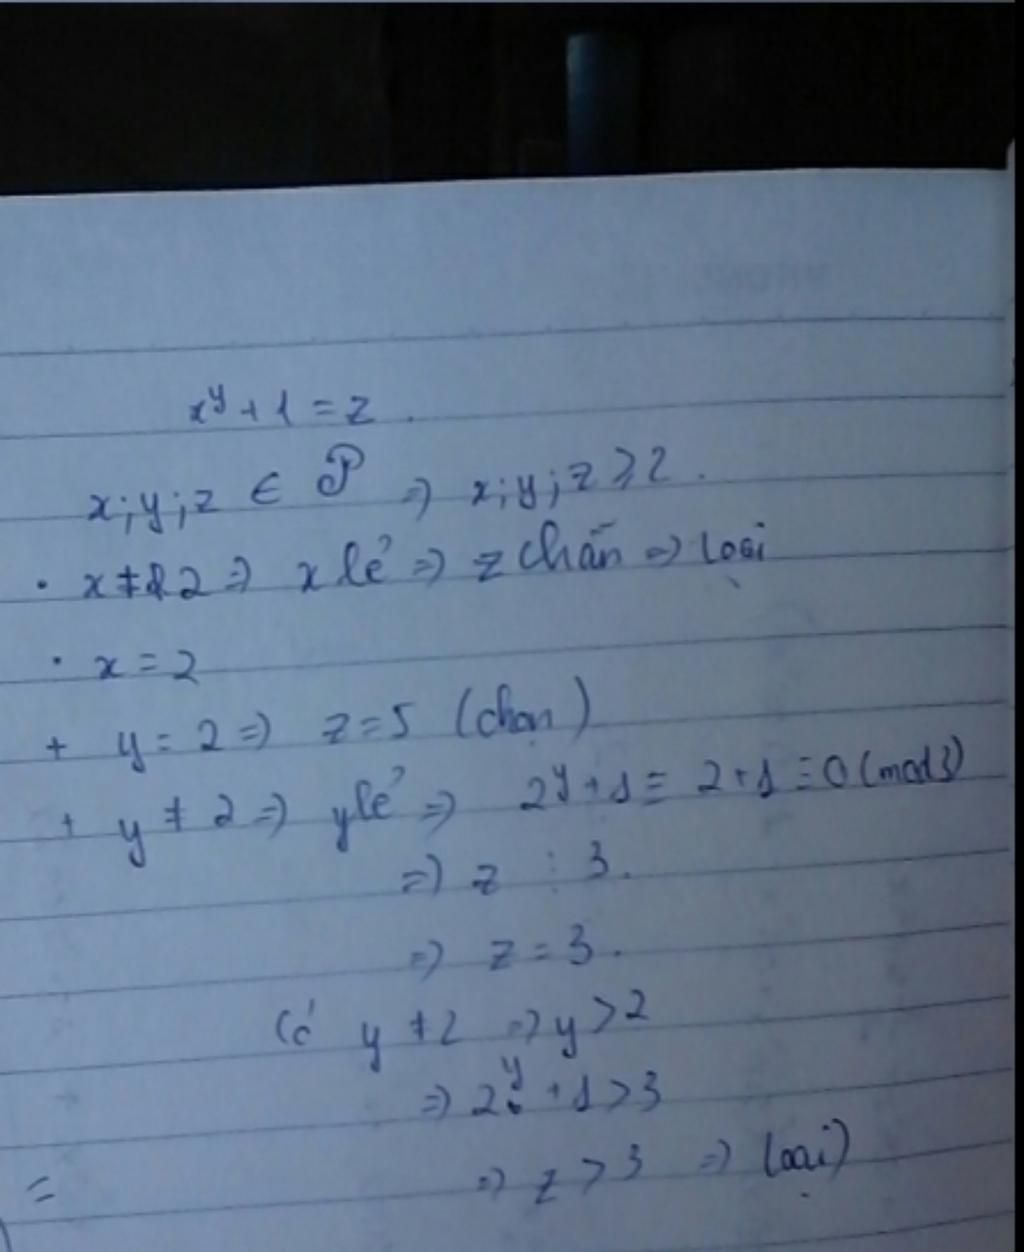 x^y + 1 = z .
x; y; z ∈ P ⇒ x; y; z ⩾ 2 .
• x ≠ 2 ⇒ x lẻ ⇒ z chẵn ⇒ loại
• x = 2
+ y = 2 ⇒ z = 5 (chọn)
+ y ≠ 2 ⇒ y lẻ ⇒ 2^y + 1 ≡ 2 + 1 ≡ 0 (mod 3)
⇒ z ⋮ 3 .
⇒ z = 3 .
Có y ≠ 2 ⇒ y > 2
⇒ 2^y + 1 > 3
= ⇒ z > 3 ⇒ loại)